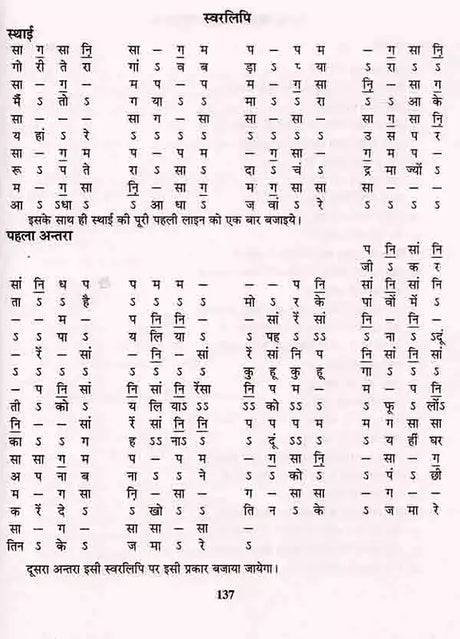 स्वरलिपि
स्थाई
सा ग॒ सा नि॒ सा – ग॒ म प – प म – ग॒ सा नि॒
गो री ते रा गां ऽ व ब ड़ा ऽ प्या ऽ रा ऽ ऽ
सा – ग॒ – म प – प म – ग॒ सा नि॒ – सा ग॒
मैं ऽ तो ऽ ग या ऽ ऽ मा ऽ ऽ रा ऽ ऽ आ के
सा – – – सा ग – सा सा – – – सा ग॒ सा नि॒
य हां ऽ रे ऽ ऽ ऽ ऽ ऽ ऽ ऽ ऽ उ स प र
सा – ग॒ म प – प म – ग॒ सा – ग॒ म प –
रू ऽ प ते रा ऽ सा ऽ दा ऽ चं ऽ द्र मा ज्यों ऽ
म – ग॒ सा नि॒ – सा ग॒ म ग॒ सा सा सा – – –
आ ऽ ऽधा ऽ ऽ आ धा ऽ ज वां ऽ रे ऽ ऽ ऽ ऽ
इसके साथ ही स्थाई की पूरी पहली लाइन को एक बार बजाइये।
पहला अन्तरा
प नि॒ सां नि॒
जी ऽ क र
सां नि॒ ध प प म म – – – प नि॒ सां नि॒ सां नि
ता ऽ ऽ है ऽ ऽ ऽ ऽ मो ऽ र के पां वों में ऽ
– – म – प नि॒ नि॒ – – सां रें सां नि॒ – नि॒ –
ऽ ऽ पा ऽ य लि या ऽ ऽ पह ऽऽ ऽऽ ऽ ना ऽ ऽदूं
– रें – सां – नि॒ – सां रें सां नि प नि॒ सां नि॒ सां
ऽ ऽ ऽ ऽ ऽ ऽ ऽ ऽ कु हू कु हू गा ऽ ऽ ऽ
– प नि॒ सां नि॒ सां नि॒ रेंसा नि॒ प म – म – प नि॒
ती ऽ को ऽ य लि याऽ ऽऽ ऽऽ को ऽऽ ऽ ऽ फू ऽ लोंऽ
नि॒ – – सां रें सां नि॒ नि॒ प प प म म ग सा सा
का ऽ ऽ ग ह ऽऽ नाऽ ऽ ऽ दूं ऽऽ ऽ ऽ य हीं घर
सा सा ग॒ म प – प म – ग॒ सा नि॒ – सा – ग॒
अ प ना ब ना ऽ ऽ ने ऽ ऽ को ऽ ऽ पं ऽ छी
म – ग॒ सा नि॒ – सा – ग – सा सा – ग – –
क रें दे ऽ ऽ खो ऽ ऽ ति न ऽ के ऽ ज मा रे
सा – ग – सा सा – सा –
तिन ऽ के ऽ ज मा ऽ रे ऽ
दूसरा अन्तरा इसी स्वरलिपि पर इसी प्रकार बजाया जायेगा।
137